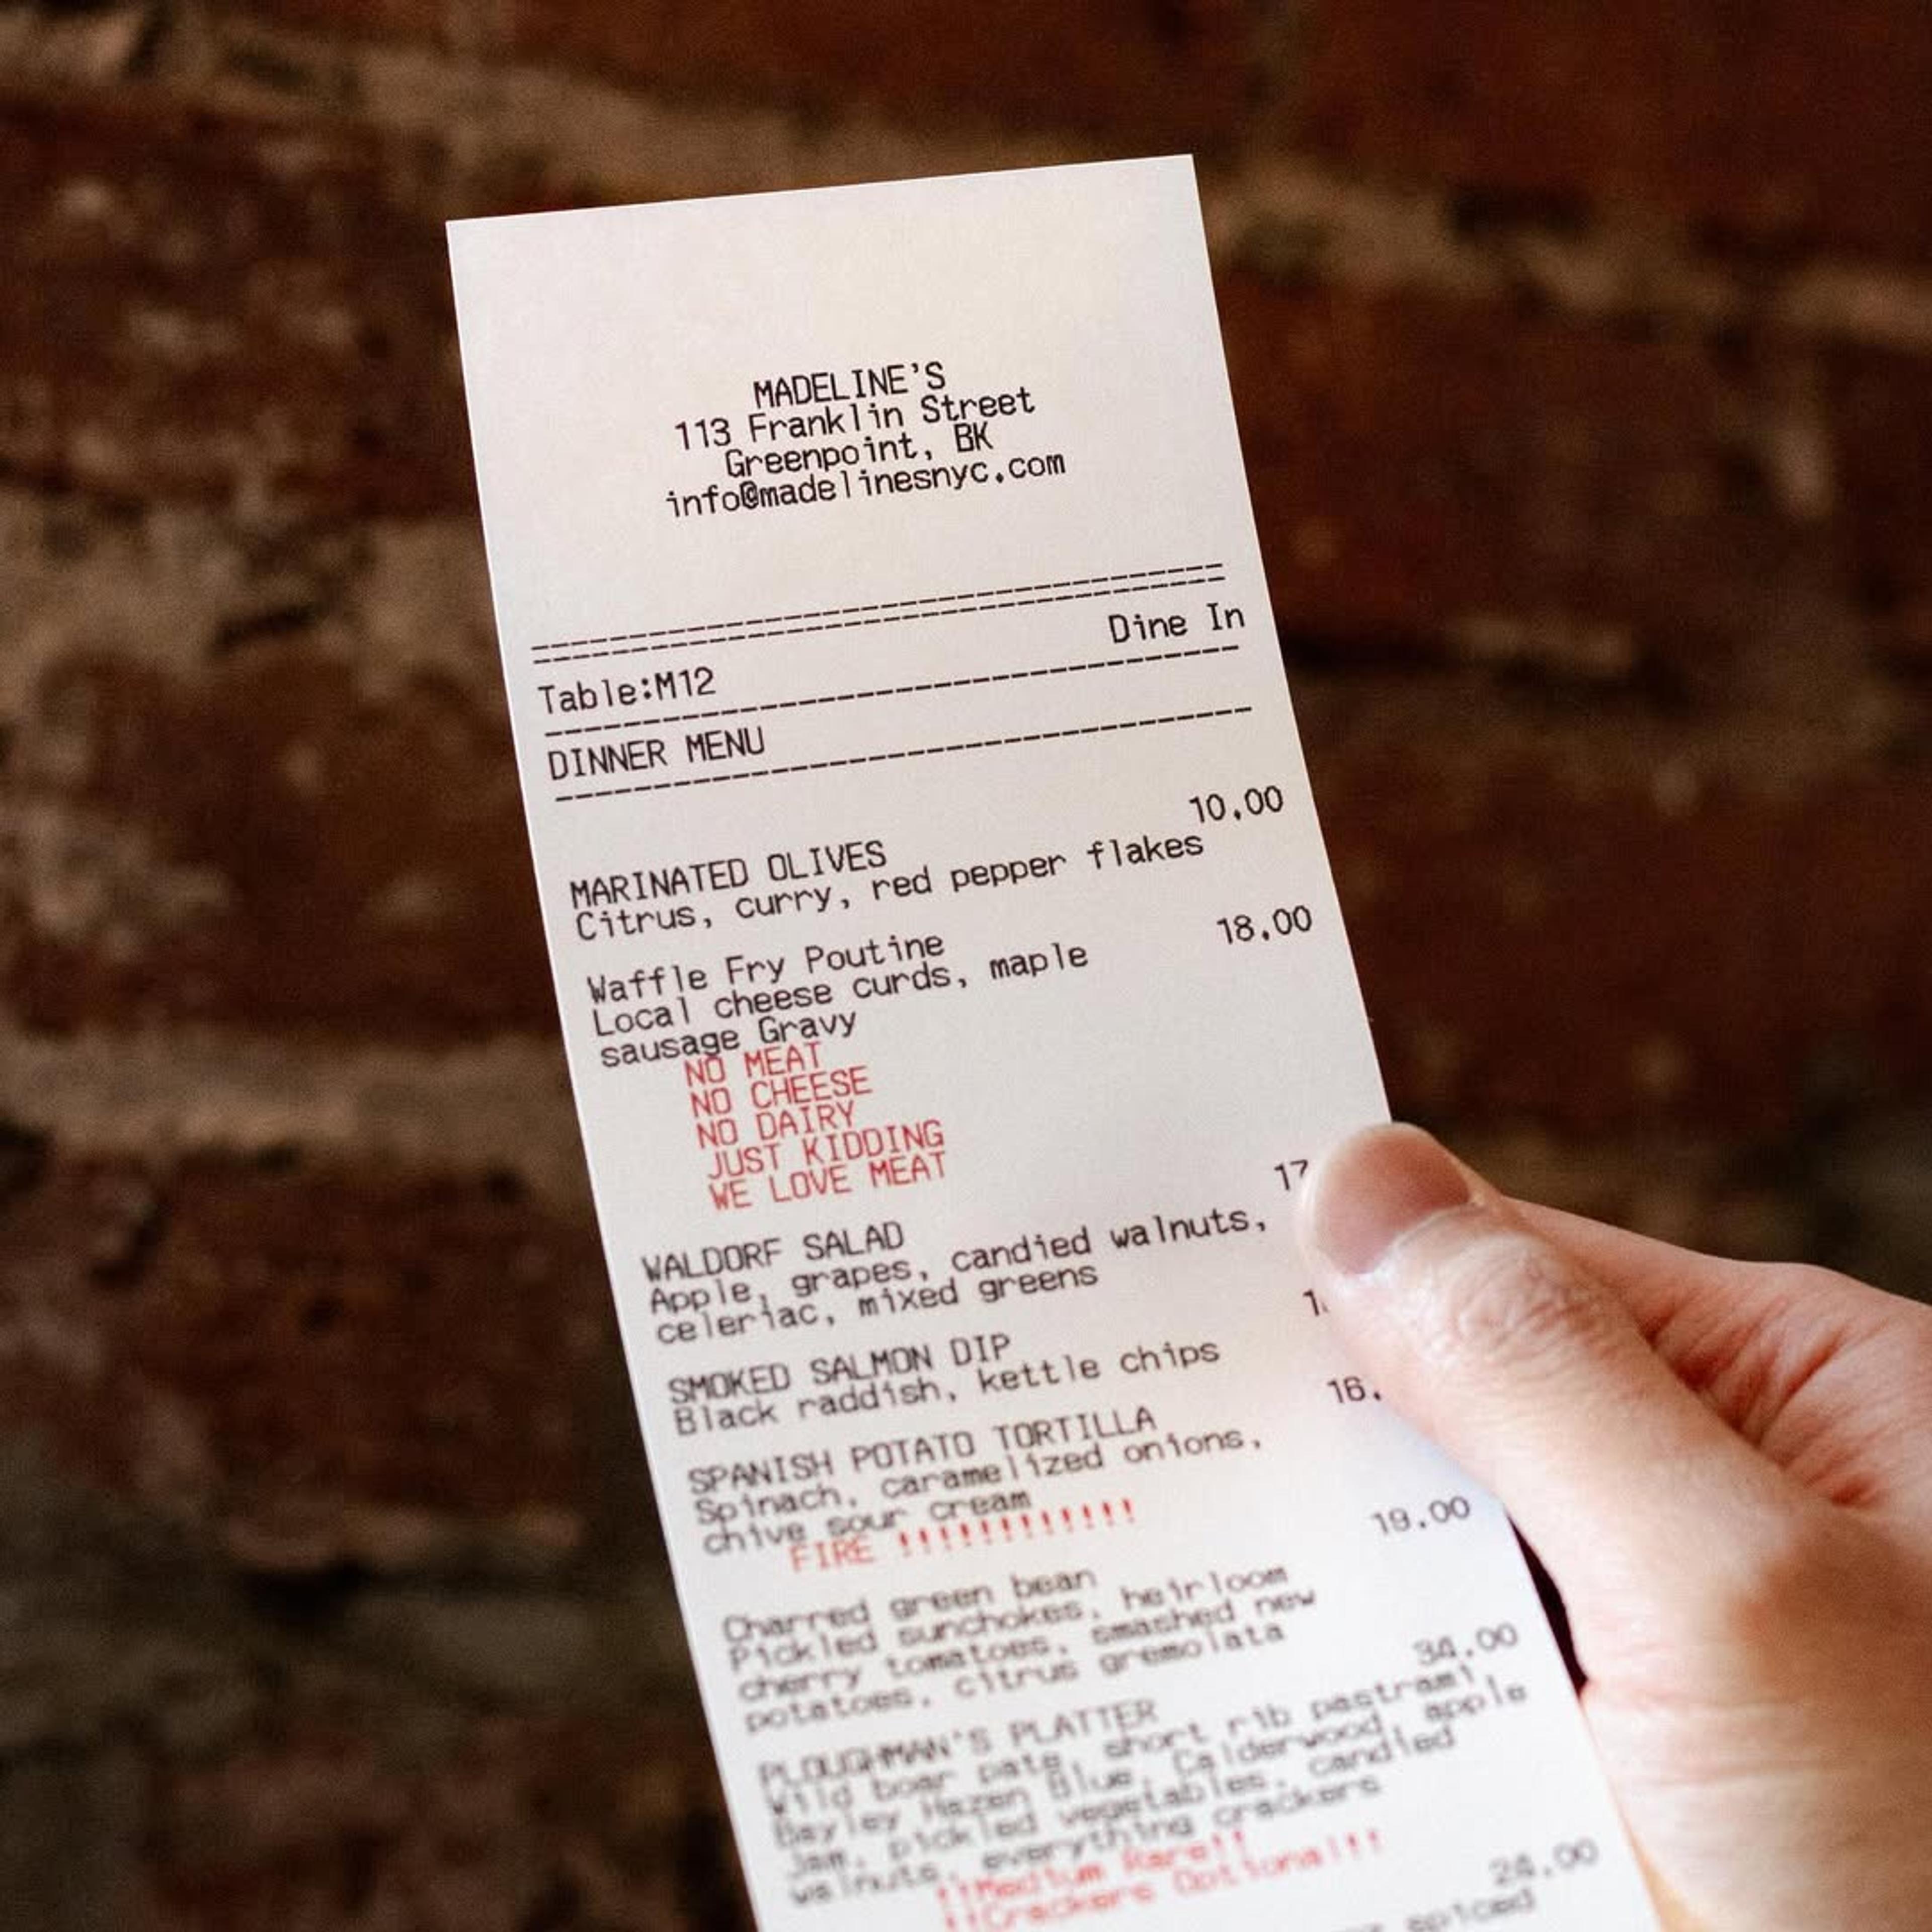 MADELINE'S
113 Franklin Street
Greenpoint, BK
info@madelinesnyc.com
Dine In
Table:M12
DINNER MENU
10.00
MARINATED OLIVES
Citrus, curry, red pepper flakes
18.00
Waffle Fry Poutine
Local cheese curds, maple
sausage Gravy
NO MEAT
NO CHEESE
NO DAIRY
JUST KIDDING
WE LOVE MEAT
17
WALDORF SALAD
Apple, grapes, candied walnuts,
celeriac, mixed greens
SMOKED SALMON DIP
Black raddish, kettle chips
16.
SPANISH POTATO TORTILLA
Spinach, caramelized onions,
chive sour cream
FIRE !!!!!!!!!!!!
19.00
Charred green bean
Pickled sunchokes, heirloom
cherry tomatoes, smashed new
potatoes, citrus gremolata
34.00
PLOUGHMAN'S PLATTER
Wild boar pate, short rib pastrami,
Bayley Hazen Blue, Calderwood, apple
jam, pickled vegetables, candied
walnuts, everything crackers
!!Medium Rare!!
!!Crackers Optional!!
24.00
spiced